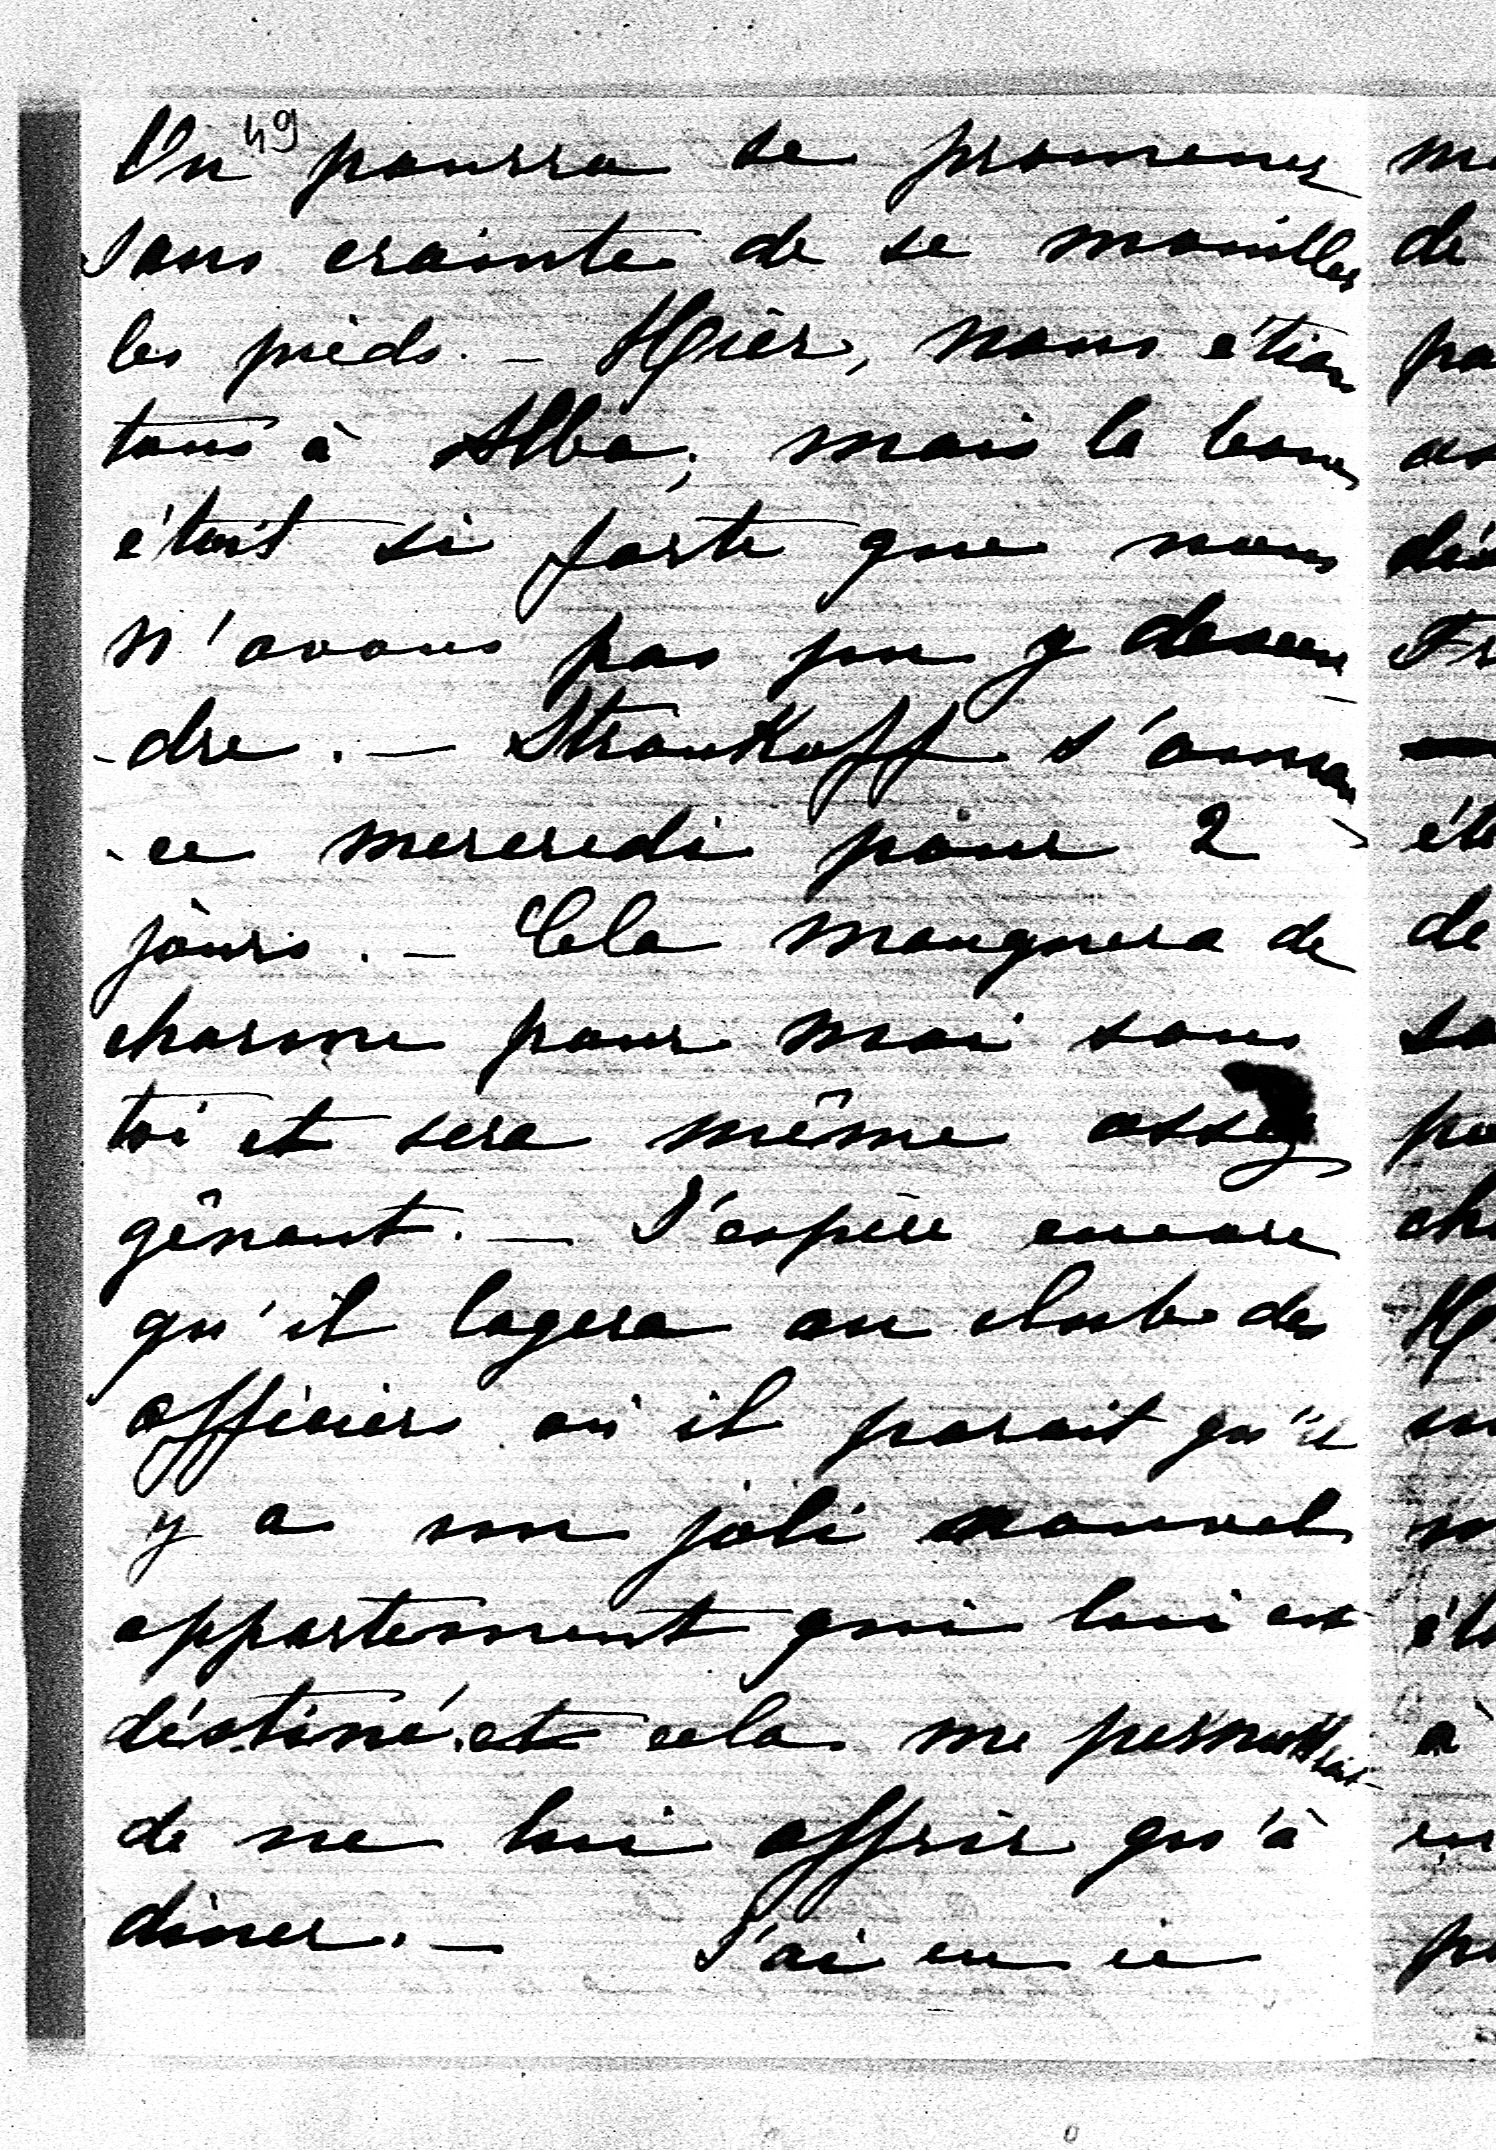 49
On pourra se promener
sans crainte de se mouiller
les pieds. — Hier, nous étions
tous à Alba; mais la boue
était si forte que nous
n'avons pas pu y descen
-dre. — Stroukoff s'annon
-ce mercredi pour 2
jours. — Cela manquera de
charme pour moi sans
toi et sera même assez
gênant. — J'espère encore
qu'il logera au club des
officiers où il parait qu'il
y a un joli nouvel
appartement qui lui est
déstiné et cela me permettrait
de ne lui offrir qu'à
diner. — J'ai eu ce